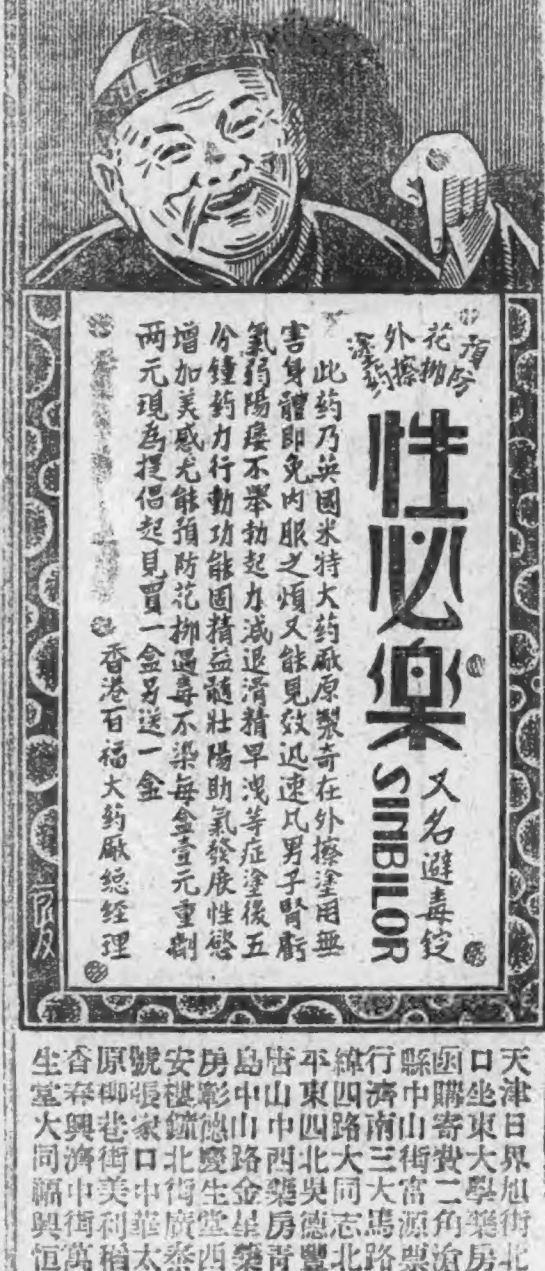 預防
花柳
外擦
塗药
性必樂
又名避毒錠
SIMBILOR
此药乃英國米特大药廠原製奇在外擦塗用無
害身體即免内服之煩又能見效迅速凡男子腎虧
氣弱陽痿不举勃起力減退滑精早洩等症塗後五
分鐘药力行動功能固精益髓壯陽助氣發展性慾
增加美感尤能預防花柳遇毒不染每盒壹元重劑
两元現為提倡起見買一盒另送一盒
香港百福大药廠總经理
天津日界旭街北
口坐東大學藥房
函購寄費二角滄
縣中山街富源票
行濟南三大馬路
緯四路大同志北
平東四北吳德豐
唐山中西藥房青
島中山路金星藥
房彰德慶生堂西
安楳鏞北街廣泰
號張家口中華太
原柳巷街美利稻
香春興濟中街萬
生堂大同福興恒